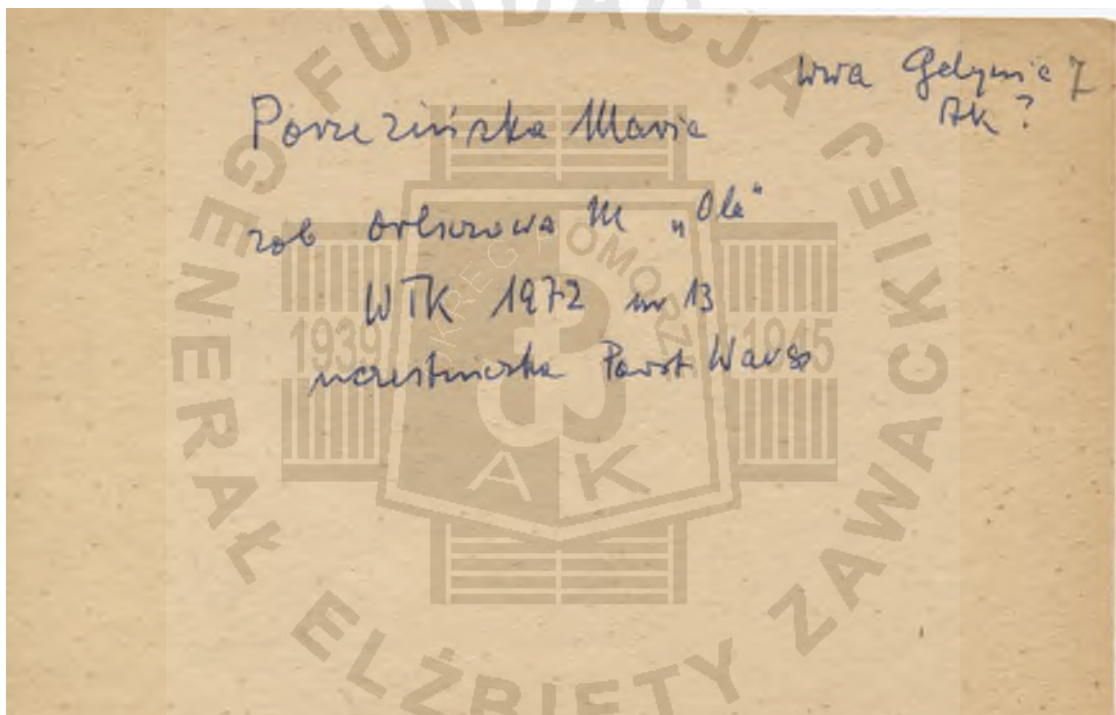 Wwa Gdynia Z
AK?
Porzezińska Maria
zob Orliczowa M „Ola"
WTK 1972 nr 13
uczestniczka Powst Warsz
FUNDACJA GENERAŁ ELŻBIETY ZAWACKIEJ
OKRĘG POMORZE
1939 1945
AK